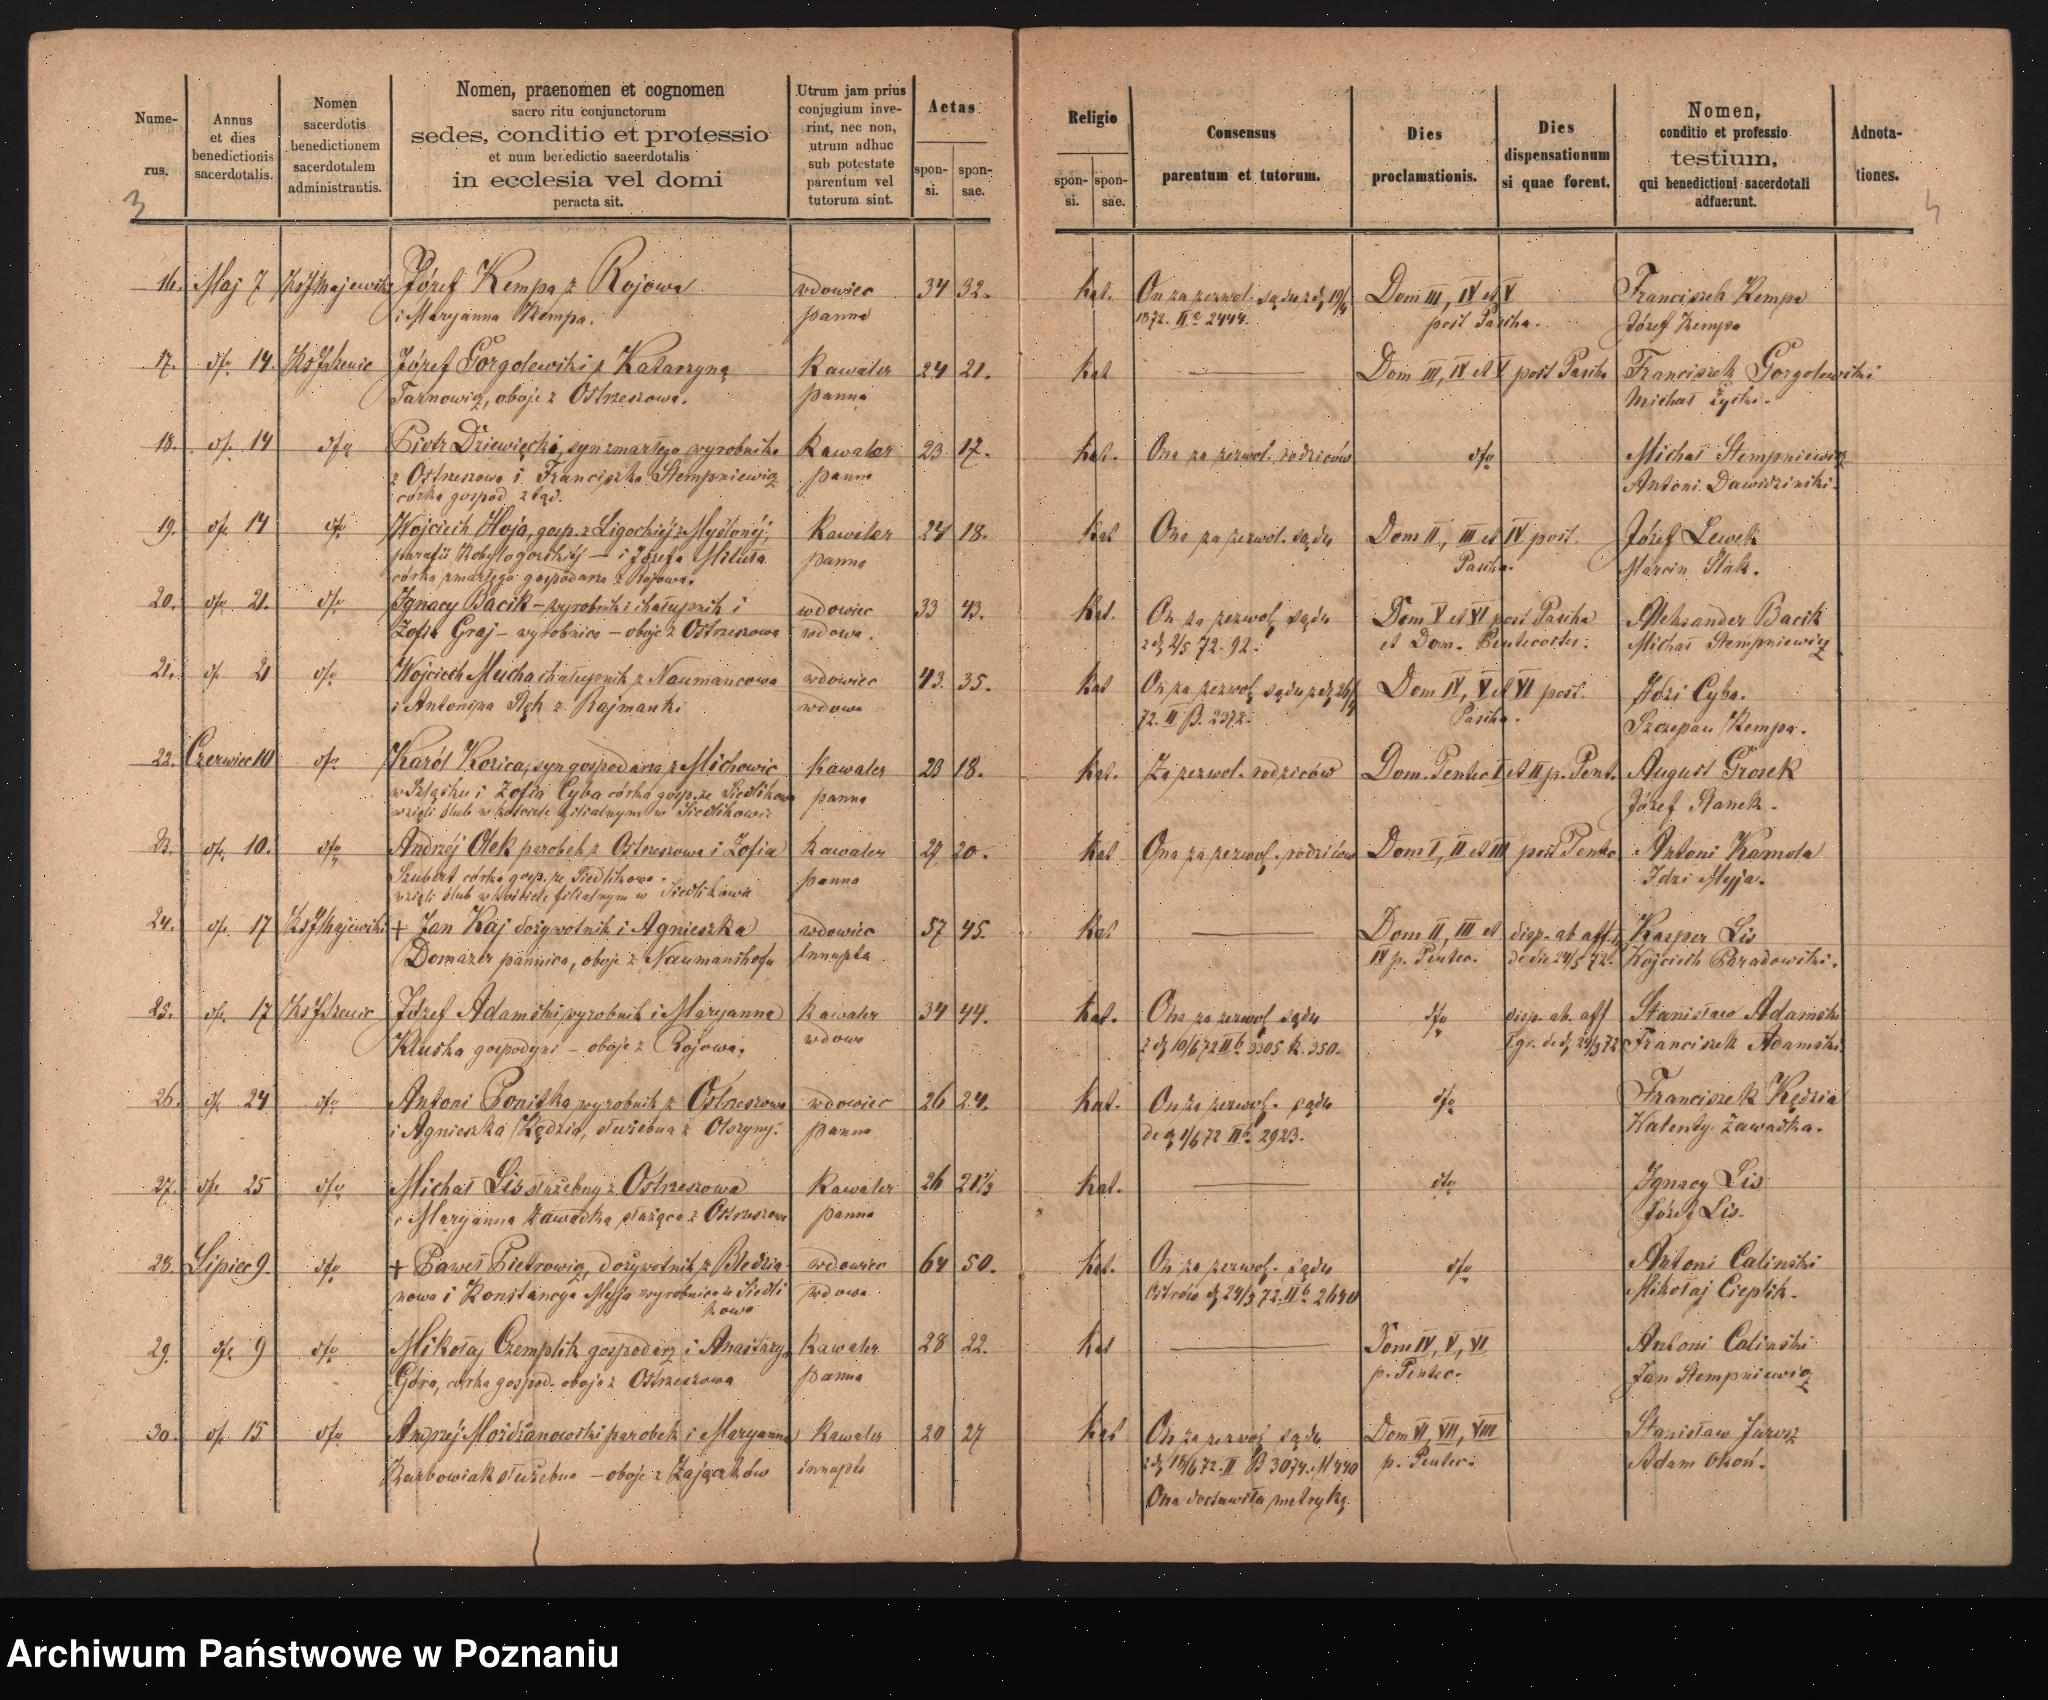 Nume-
rus.
3
Annus
et dies
benedictionis
sacerdotalis.
Nomen
sacerdotis
benedictionem
sacerdotalem
administrantis.
Nomen, praenomen et cognomen
sacro ritu conjunctorum
sedes, conditio et professio
et num benedictio sacerdotalis
in ecclesia vel domi
peracta sit.
Utrum jam prius
conjugium inve-
rint, nec non,
utrum adhuc
sub potestate
parentum vel
tutorum sint.
Aetas
spon-
si.
spon-
sae.
Religio
spon-
si.
spon-
sae.
Consensus
parentum et tutorum.
Dies
proclamationis.
Dies
dispensationum
si quae forent.
Nomen,
conditio et professio
testium,
qui benedictioni sacerdotali
adfuerunt.
Adnota-
tiones.
16. Maj 7 Józef Kempa z Rojowa wdowiec 34 32. kat. On za zezwol. sądu Dom III, IV et V Franciszek Kempa
i Maryanna Kempa. panna 1872. 2444. post Pascha. Józef Kempa
17. dto 14. Józef Gorgolewski z Katarzyną Kawaler 24 21. kat Dom III, IV et V post Pascha Franciszek Gorgolewski
Tarnowicz, oboje z Ostrzeszowa. panna Michał
18. dto 14 dto Piotr Dziewięcki, syn zmarłego wyrobnika Kawaler 23 17. kat. Ona za zezwol. rodziców dto Michał Stempniewicz
z Ostrzeszowa i Franciszka Stempniewicz panna Antoni Dawidziński.
córka gospod.
19. dto 14 dto Wojciech Hoja, gosp. z Kawaler 24 18. kat Ona za zezwol. sądu Dom II, III et IV post. Józef Lewek
parafii Kobylogórskiéj — i Józefa panna Pascha. Marcin Ptak.
córka zmarłego gospodarza z Rojowa.
20. dto 21. dto Ignacy Bacik – wyrobnik i chałupnik i wdowiec 33 43. kat. On za zezwol. sądu Dom V et VI post Pascha Aleksander Bacik
Zofia Graj – wyrobnica – oboje z Ostrzeszowa wdowa. 2/5 72. 92. et Dom. Pentecostes. Michał Stempniewicz
21. dto 21 dto Wojciech Mucha chałupnik z Naumancowa wdowiec 43. 35. kat On za zezwol. sądu Dom IV, V et VI post. Idzi Cyba.
i Antonina z Rajmanki wdowa 72. II B. 2372. Pascha. Szczepan Kempa.
22. Czerwiec 10 dto Karól Kozica, syn gospodarza z Kawaler 23 18. kat. Za zezwol. rodziców Dom. Pentec I et II p. Pent. August Grosek
w Szląsku i Zofia Cyba córka gosp. ze Siedlikowa panna Józef Stanek.
wzięli ślub w kościele filialnym w Siedlikowie
23. dto 10. dto Andrzéj Olek parobek z Ostrzeszowa i Zofia Kawaler 20. kat Ona za zezwol. rodziców Dom I, II et III post Pentec Antoni Kamola
Szubert córka gosp. ze Siedlikowa. panna Idzi Myja.
wzięli ślub w kościele filialnym w Siedlikowie
24. dto 17 + Jan Kaj dożywotnik i Agnieszka wdowiec 57 45. kat Dom II, III et disp. ab aff. Kasper Lis
Domazer pannica, oboje z Naumanshofu innupta IV p. Pentec. de die 24/5 72. Wojciech Paradowski.
25. dto 17 Józef Adamski wyrobnik i Maryanna Kawaler 34 44. kat. Ona za zezwol. sądu dto disp. ab. aff Stanisław Adamski
Kluska gospodyni – oboje z Rojowa. wdowa z d. 10/6 72 II b. 3305 K. 350. Franciszek Adamski.
26. dto 24 dto Antoni Ponitka wyrobnik z Ostrzeszowa wdowiec 26 24. kat. On za zezwol. sądu dto Franciszek Kędzia
i Agnieszka Kędzia, służebna z Olszyny. panna 1/6 72 II b. 2923. Walenty Zawadka.
27. dto 25 dto Michał Lis służebny z Ostrzeszowa Kawaler 26 21 kat. dto Ignacy Lis
i Maryanna Zawadka, służąca z Ostrzeszowa panna Józef Lis.
28. Lipiec 9. dto + Paweł Pietrowicz, dożywotnik z Bledzia- wdowiec 64 50. kat. On za zezwol. sądu dto Antoni Calinski
nowa i Konstancya Myja wyrobnica ze Siedli wdowa Ostrów 72. II b 2640 Mikołaj Cieplik.
kowa
29. dto 9 dto Mikołaj Czemplik gospodarz i Anastazya Kawaler 28 22. kat Dom IV, V, VI Antoni Calinski
Góra, córka gospod. oboje z Ostrzeszowa panna p. Pentec. Jan Stempniewicz
30. dto 15 dto Andrzéj Możdżanowski parobek i Maryanna Kawaler 20 27 kat On za zezwol. sądu Dom VI, VII, VIII Stanisław Jurosz
Karbowiak służebna – oboje z Zajączków innupta 72. II B 3074. p. Pentec. Adam Okoń.
Ona dostawiła metrykę.
Archiwum Państwowe w Poznaniu